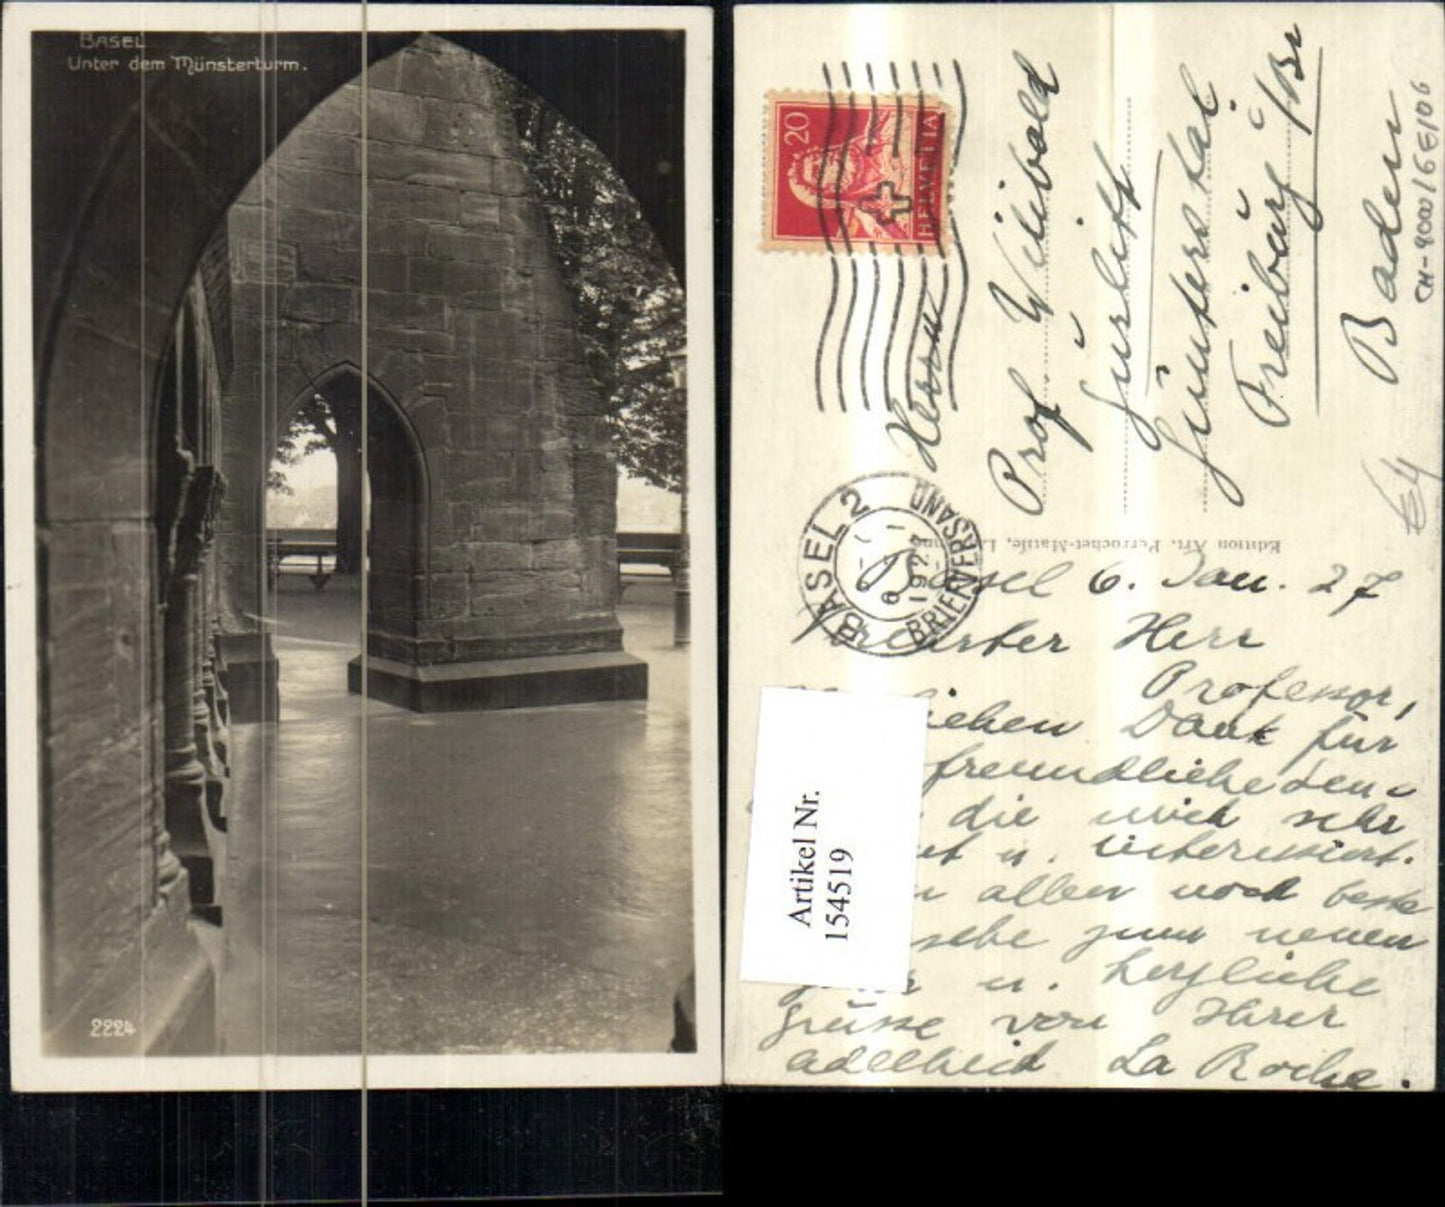 BASEL
Unter dem Münsterturm.
2224
20
HELVETIA
BASEL 2
BRIEFVERSAND
Herrn
Prof Wilibald
Gurlitt
Günterstal
Freiburg i/Br
Baden
CH-4000/6E106
Edition Art. Perrochet-Matile,
Basel 6. Jan. 27
Verehrter Herr
Professor,
lieben Dank für
freundliche
die mich sehr
u. interessiert.
allem noch beste
zum neuen
u. herzliche
Grüsse von Ihrer
Adelheid La Roche.
Artikel Nr.
154519